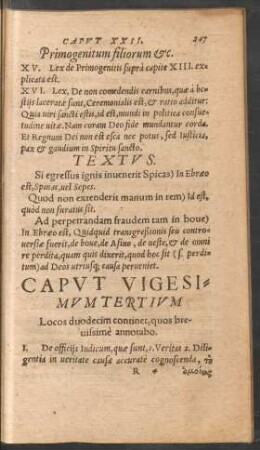 CAPVT XXII. 247
Primogenitum filiorum &c.
XV. Lex de Primogenitis suprà capite XIII. ex-
plicata est.
XVI. Lex, De non comedendis carnibus, quæ à be-
stijs laceratæ sunt, Ceremonialis est, & ratio additur:
Quia uiri sancti estis, id est, mundi in politica consue-
tudine uitæ. Nam coram Deo fide mundantur corda.
Et Regnum Dei non est esca nec potus, sed Iusticia,
pax & gaudium in Spiritu sancto.
TEXTVS.
Si egressus ignis inuenerit Spicas) In Ebræo
est, Spinas, uel Sepes.
Quod non extenderit manum in rem) id est,
quòd non furatus sit.
Ad perpetrandam fraudem tam in boue)
In Ebræo est, Quidquid transgreßionis seu contro-
uersiæ fuerit, de boue, de Asino, de ueste, & de omni
re perdita, quam quis dixerit, quod hoc sit (s. perdi-
tum) ad Deos utriusq; causa perueniet.
CAPVT VIGESI-
MVMTERTIVM
Locos duodecim continet, quos bre-
uissimè annotabo.
I. De officijs Iudicum, quæ sunt, 1. Veritas 2. Dili-
gentia in ueritate causæ accuratè cognoscenda, τὸ
R 4 ὁμοίως